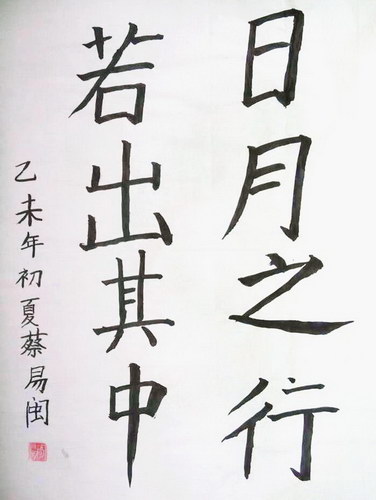 日月之行
若出其中
乙未年初夏蔡易闽